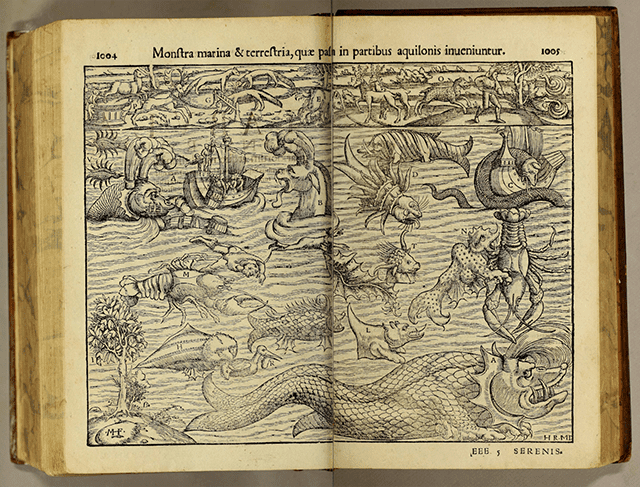 1004 Monſtra marina & terreſtria, quæ in partibus aquilonis inueniuntur. 1005
A
B
C
D
N
M
H
EEE 5 SERENIS.